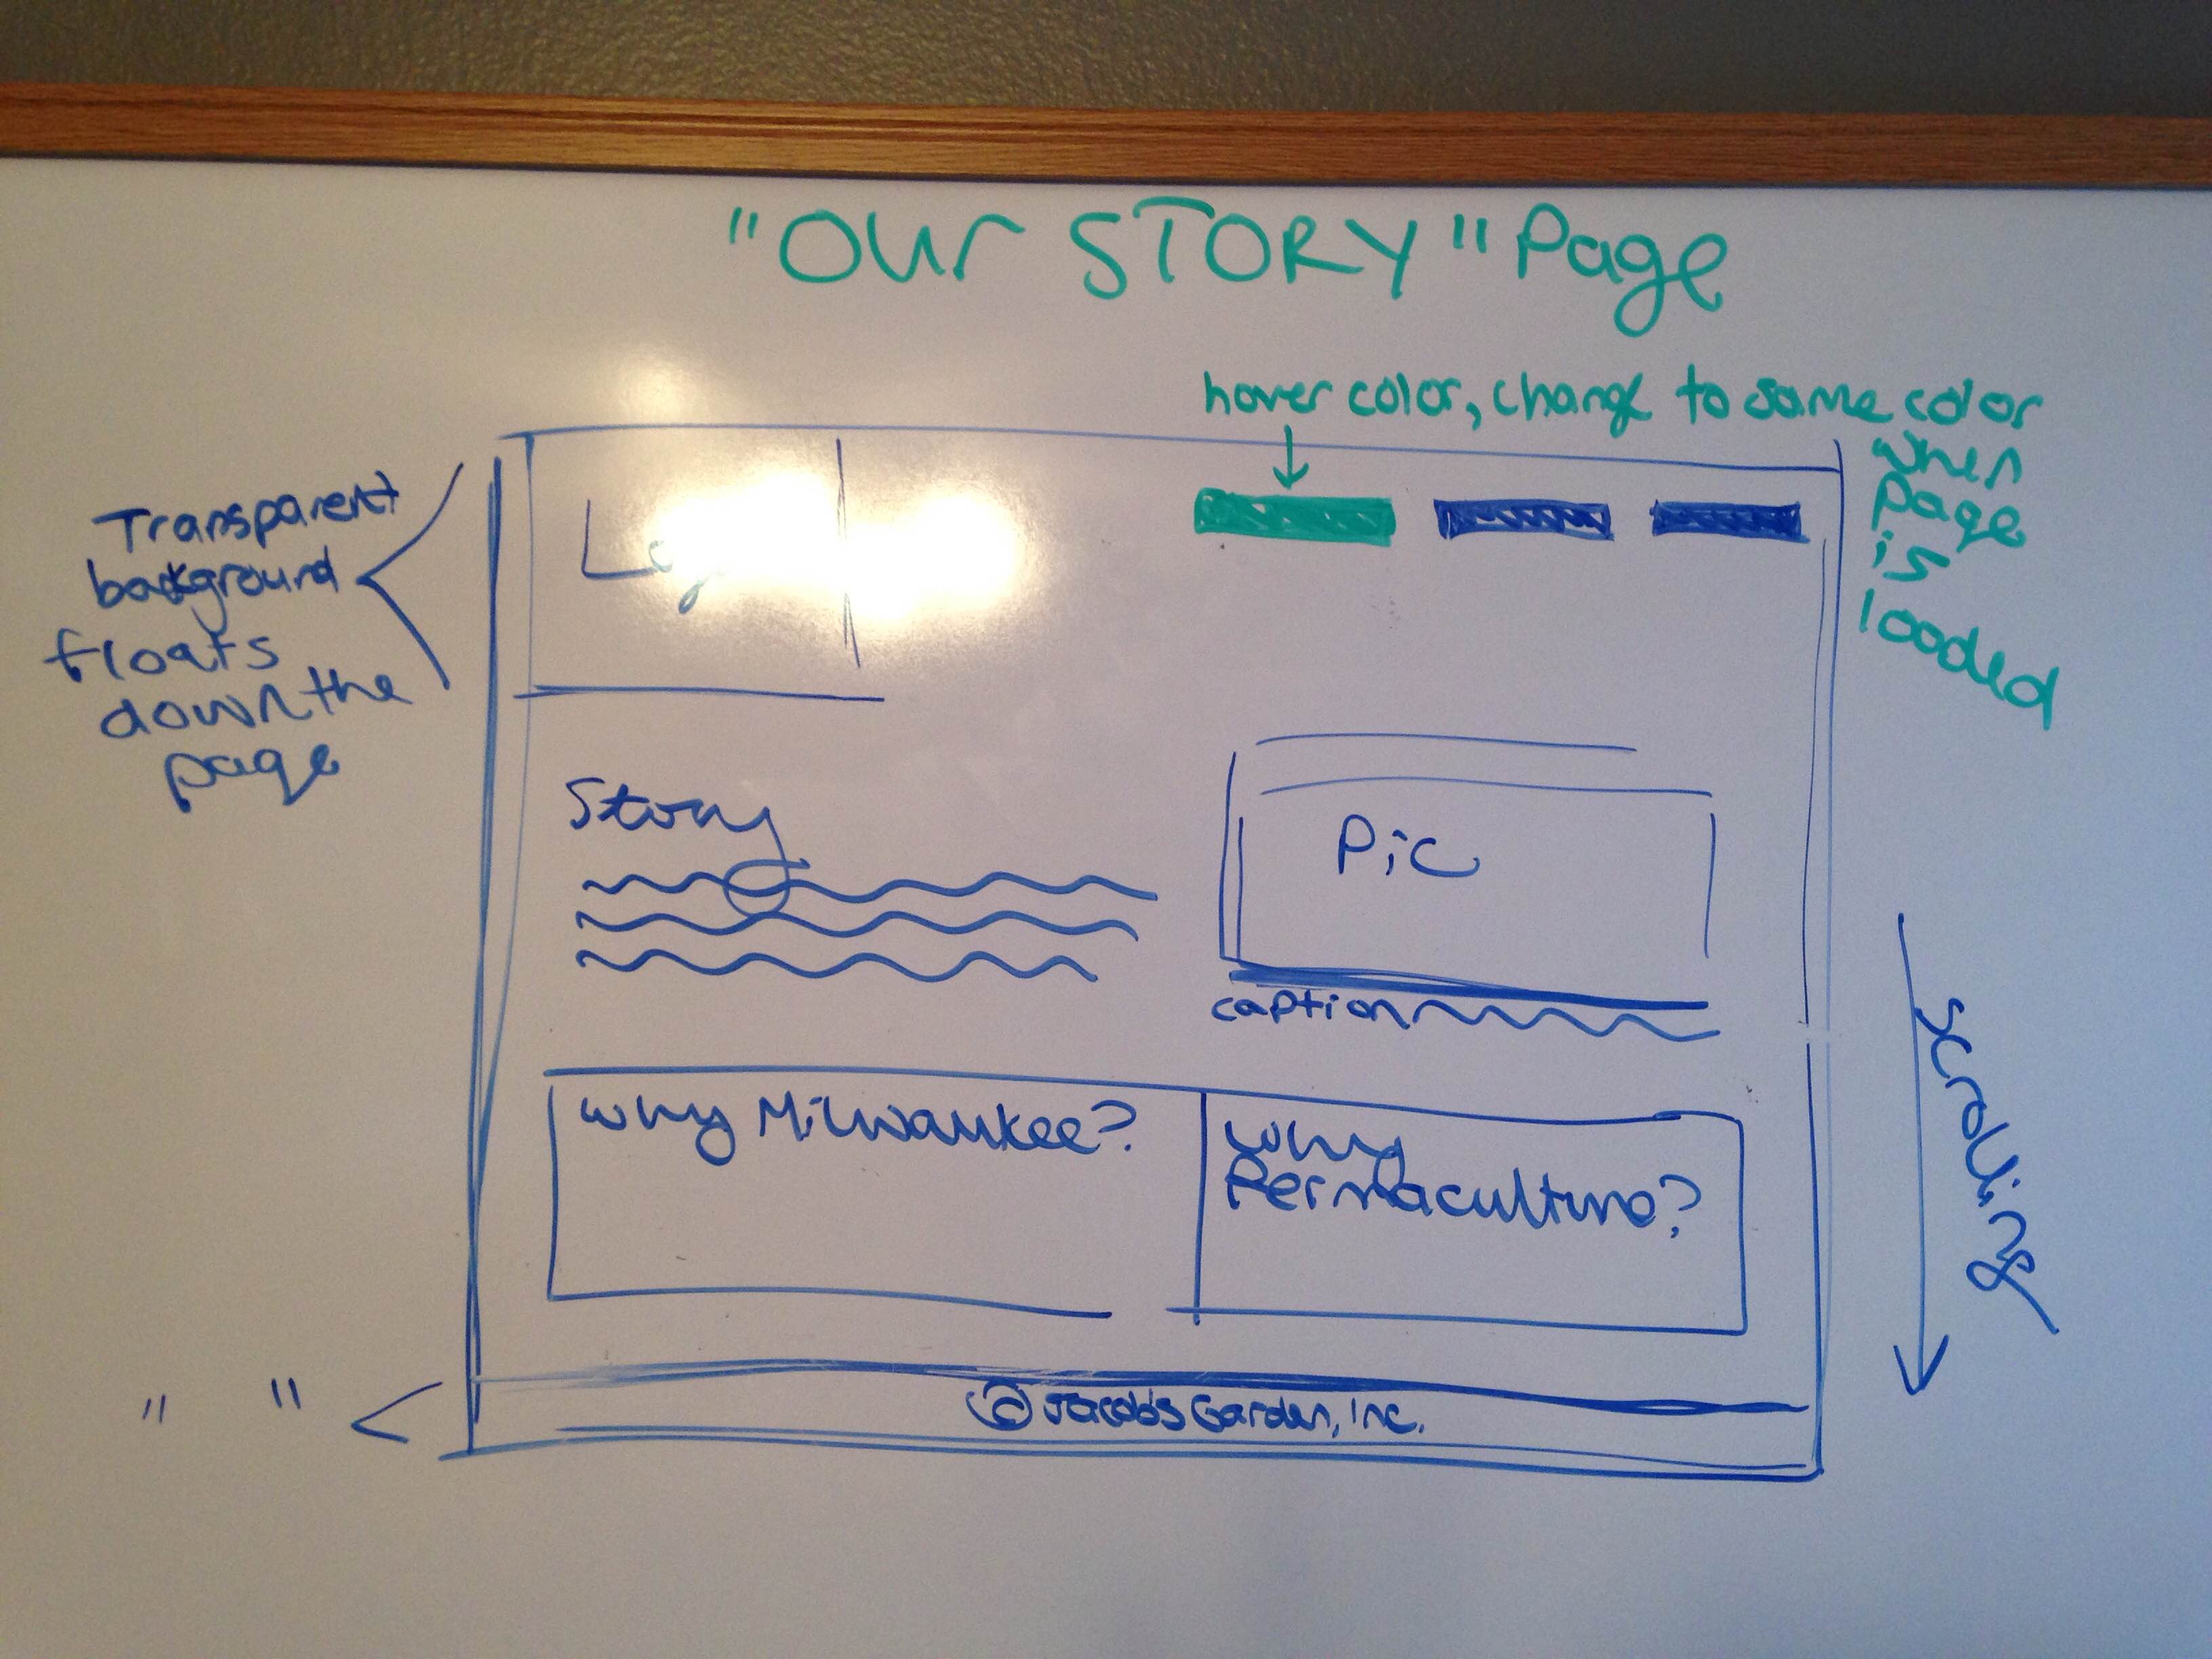 "Our STORY" Page
hover color, change to same color
when
page
is
loaded
Transparent
background
floats
down the
page
Story
Pic
caption
scrolling
Why Milwaukee?
Why
Permaculture?
" "
© Jacob's Garden, Inc.